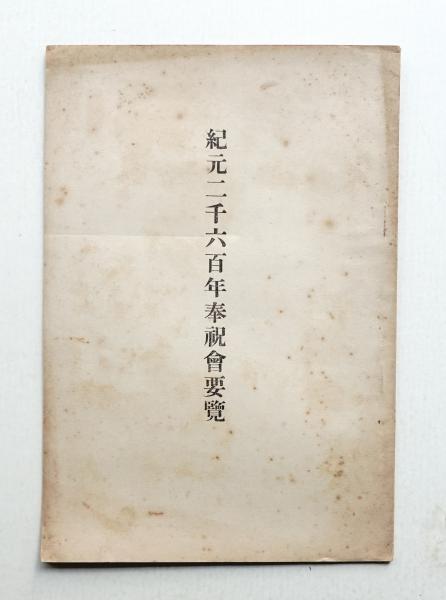 紀元二千六百年奉祝會要覽